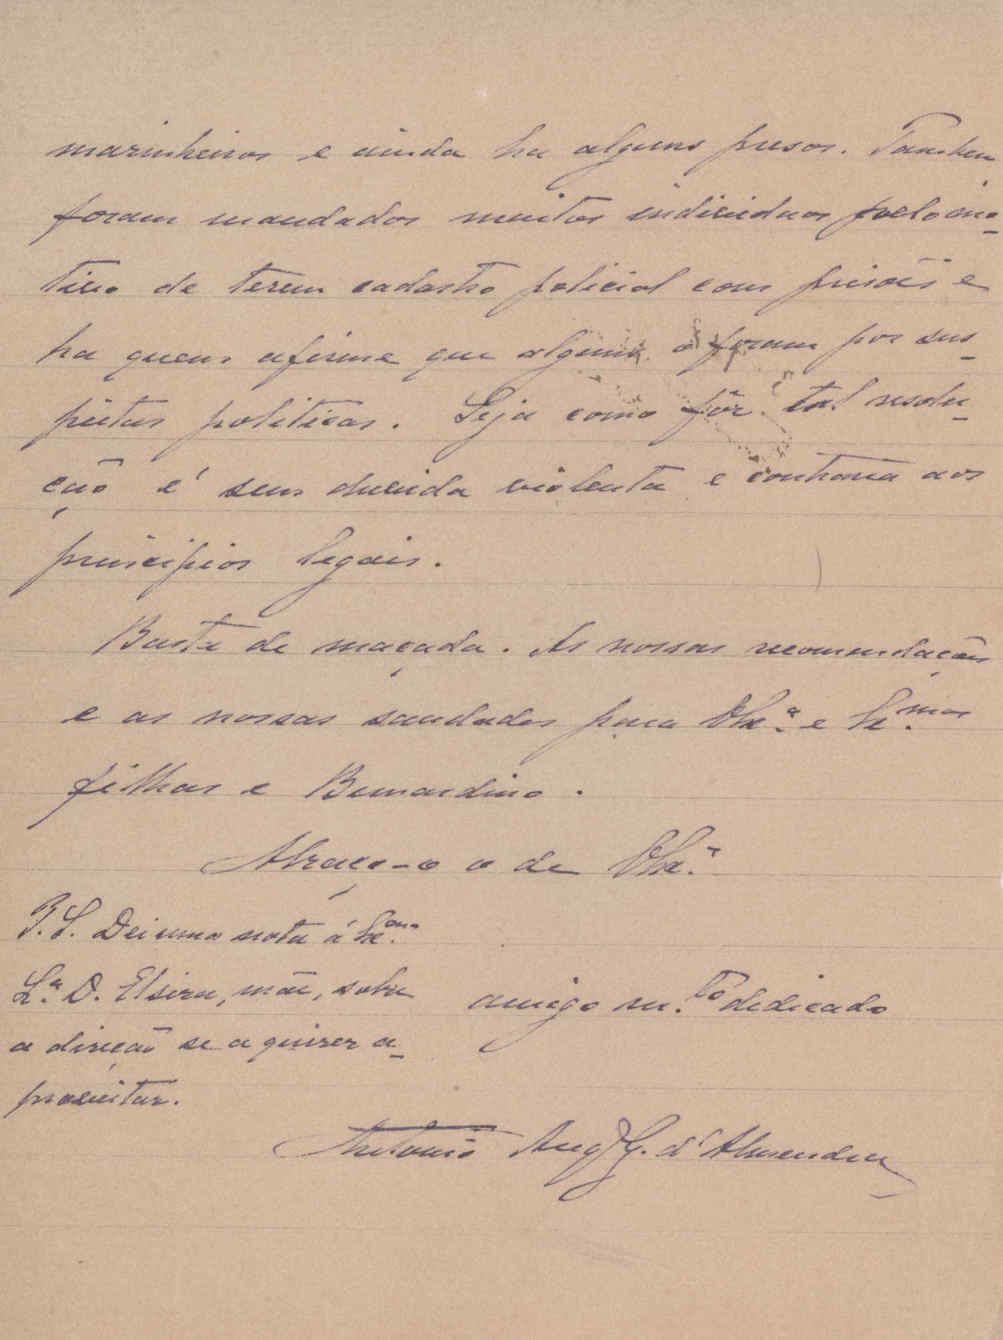 marinheiros e ainda ha alguns presos. Tambem
foram mandados muitos individuos pelo mo-
tivo de terem cadastro policial com prisões e
ha quem afirme que alguns o foram por sus-
peitas politicas. Seja como fôr tal resolu-
ção é sem duvida violenta e contraria aos
principios legais.
Basta de maçada. As nossas recomendações
e as nossas saudades para VExª. e Ex.mas
filhas e Bernardino.
Abraça-o o de VExª.
P.S. Dei uma nota á Ex.ma
Sr.ª D. Elzira, mãe, sobre
a direcão se a quizer a-
proveitar.
amigo m.to dedicado
Antonio Aug. G. d'Almendra